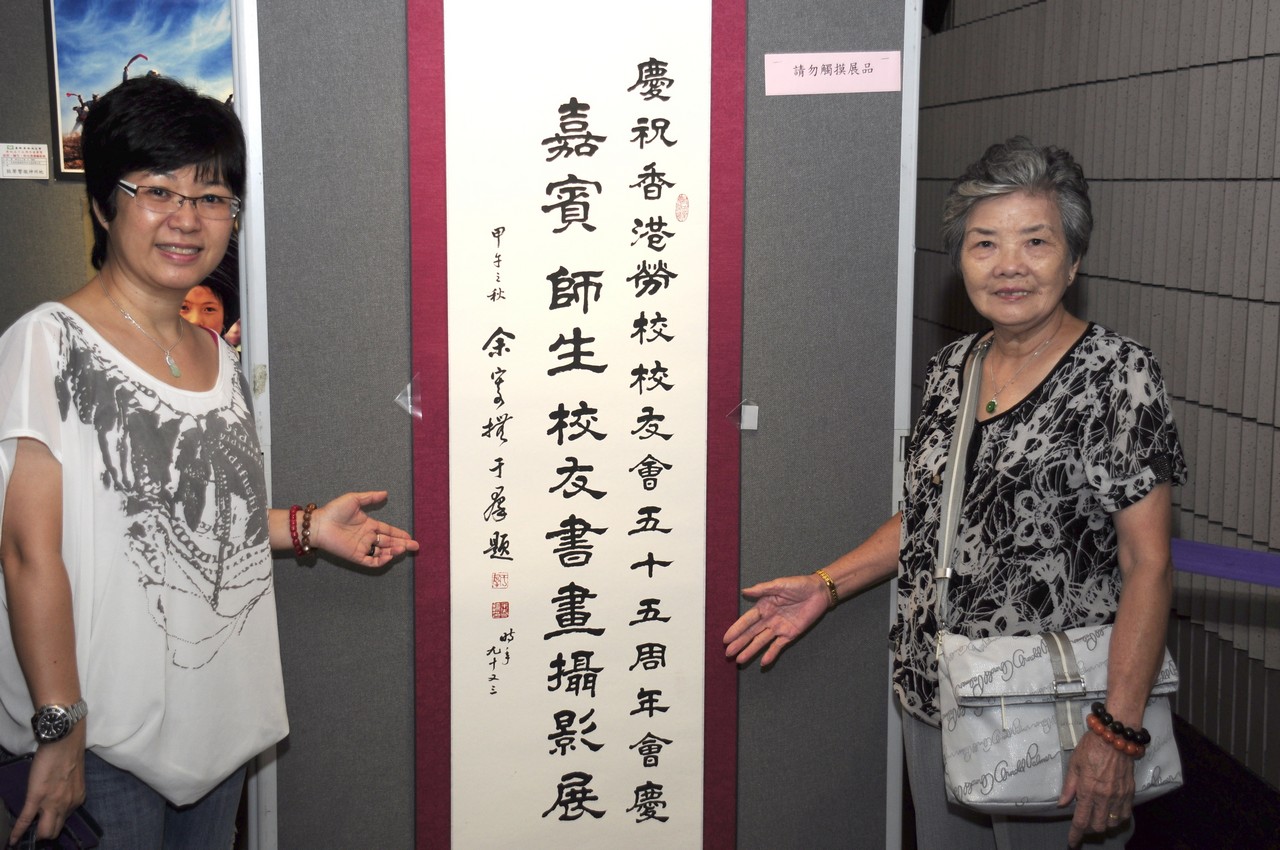 請勿觸摸展品
慶祝香港勞校校友會五十五周年會慶
嘉賓師生校友書畫攝影展
甲午之秋 余寄 于 題
時年九十又三